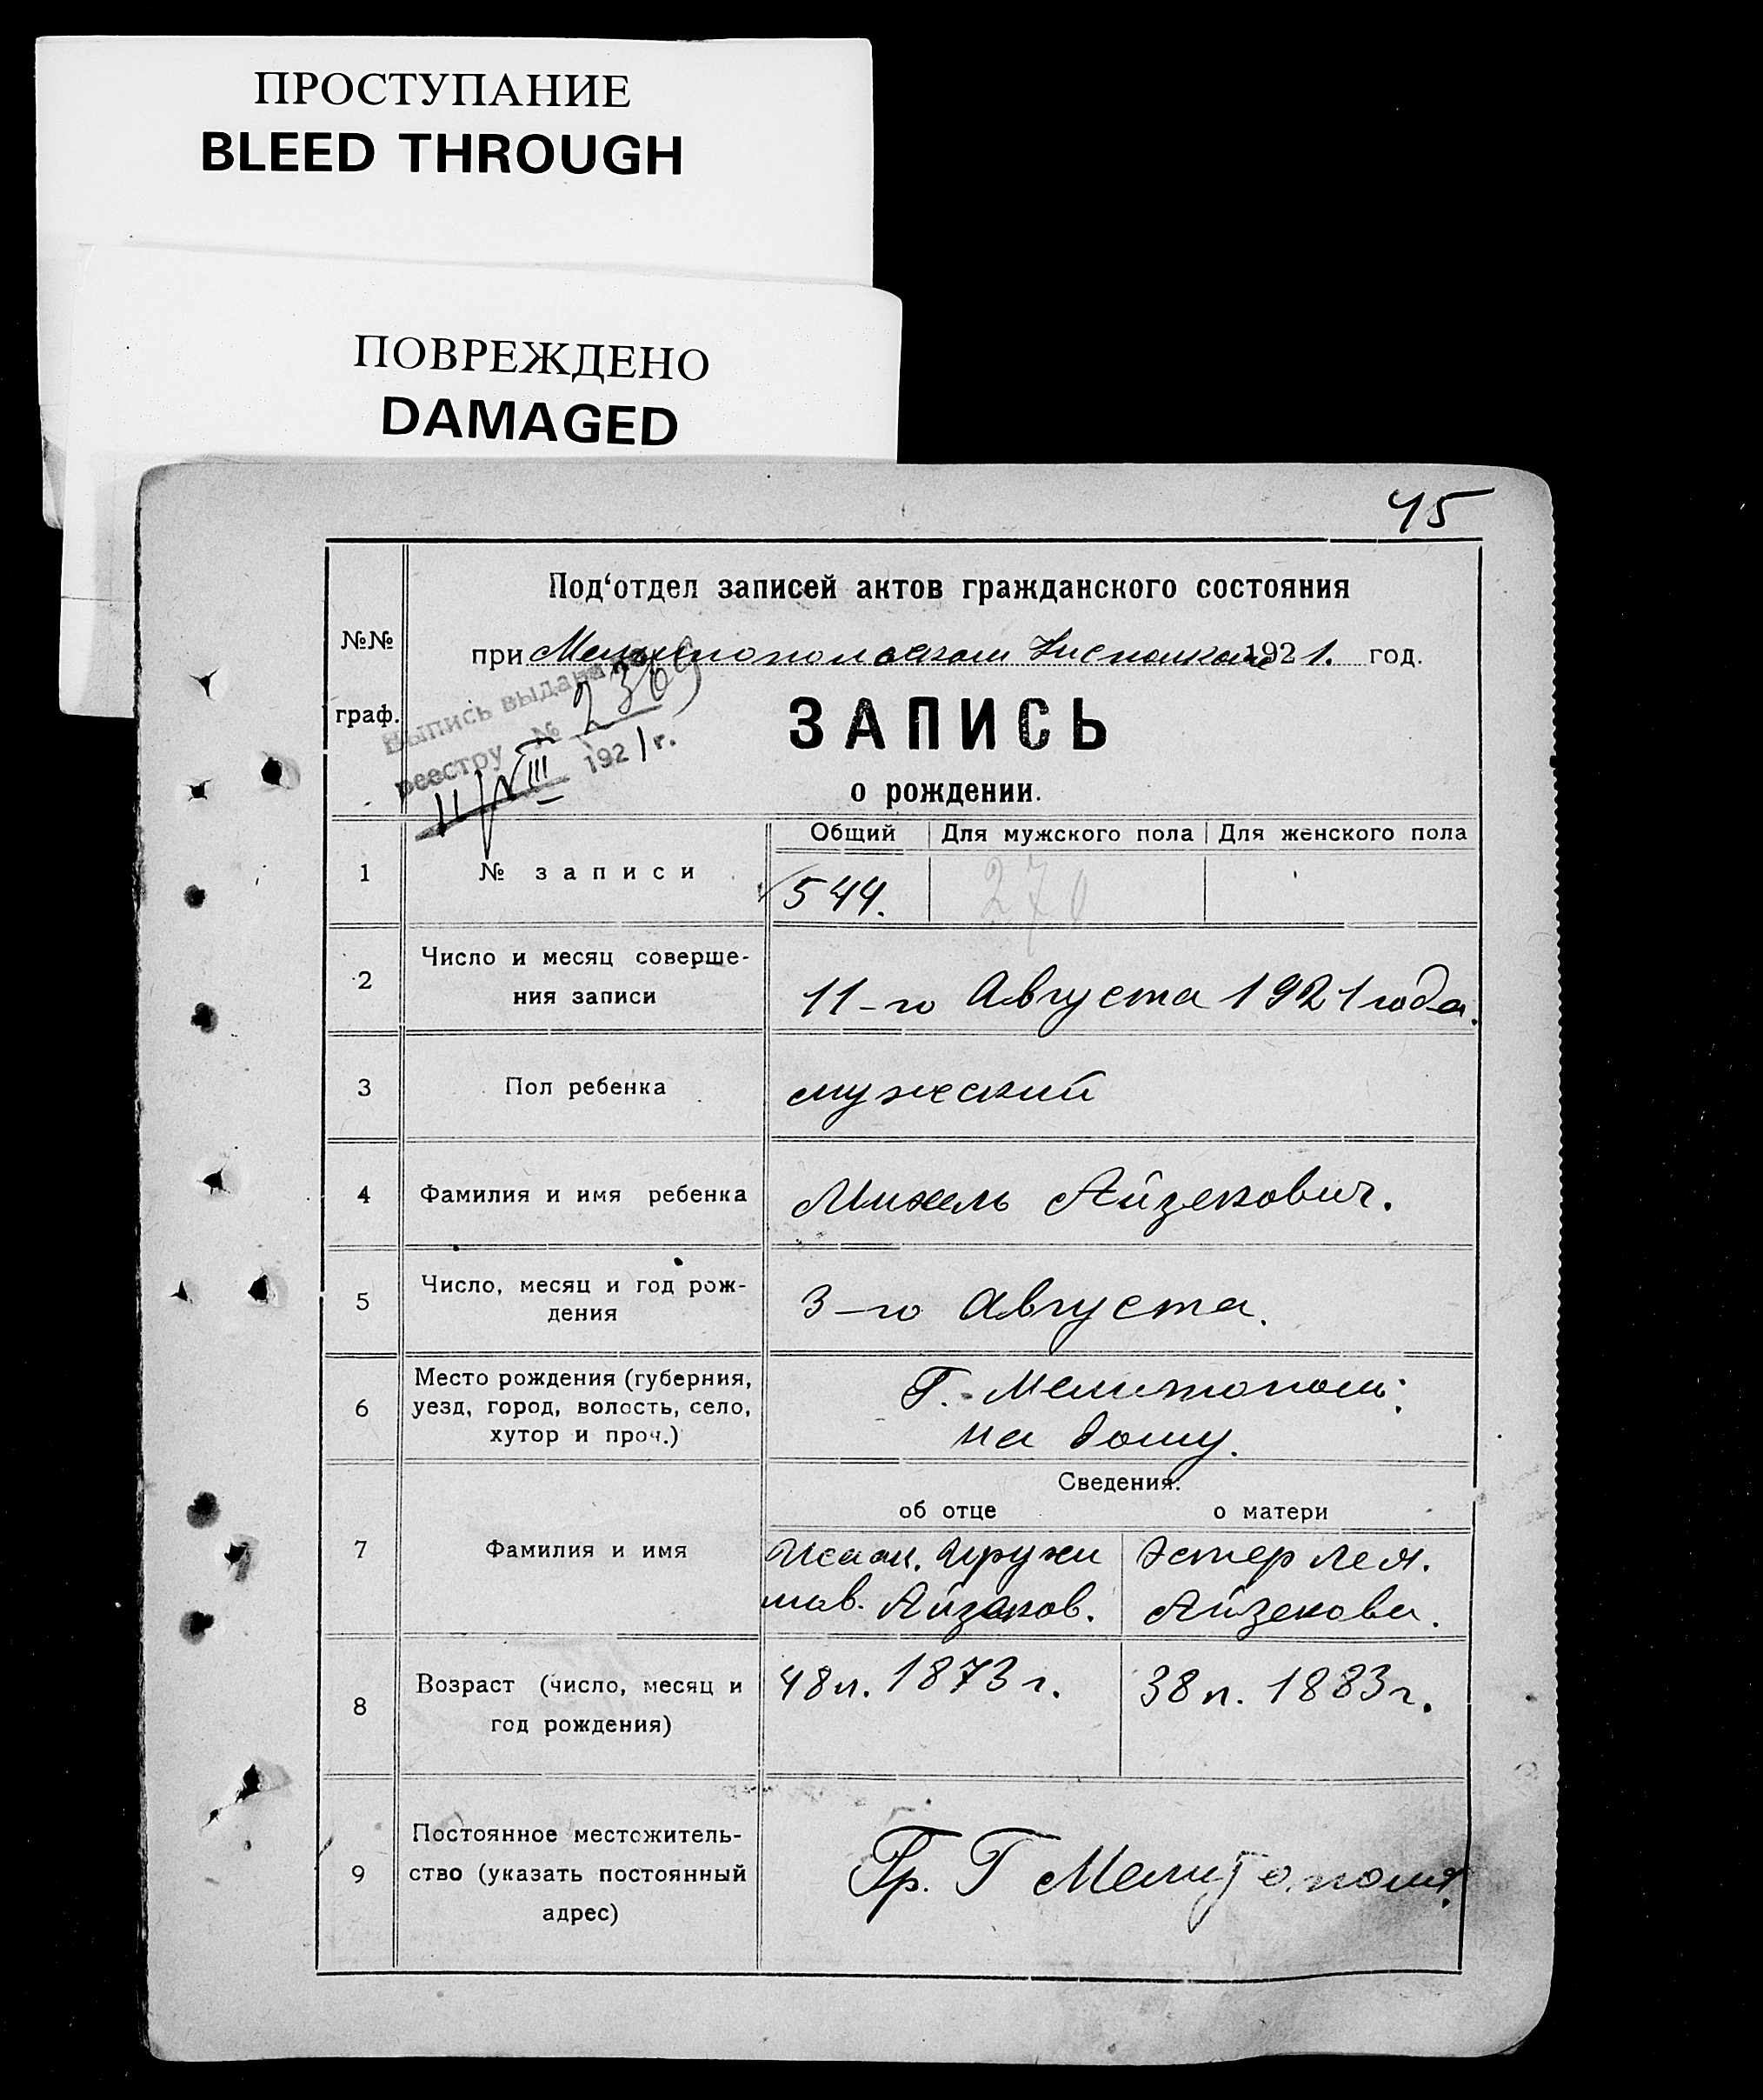 ПРОСТУПАНИЕ
BLEED THROUGH
ПОВРЕЖДЕНО
DAMAGED
45
Под‘отдел записей актов гражданского состояния
№№
граф.
при Мелитопольском 1921. год.
Выпись выдана по
реестру № 2369
11/VIII 1921 г.
ЗАПИСЬ
о рождении.
Общий Для мужского пола Для женского пола
1 № записи 544. 270
2 Число и месяц соверше-
ния записи
11-го Августа 1921 года.
3 Пол ребенка мужеский
4 Фамилия и имя ребенка Михель Айзекович.
5 Число, месяц и год рож-
дения
3-го Августа.
6 Место рождения (губерния,
уезд, город, волость, село,
хутор и проч.)
Г. Мелитополь:
на дому.
Сведения:
об отце о матери
7 Фамилия и имя
Исаак. Эстер Лея.
Айзаков. Айзекова.
8 Возраст (число, месяц и
год рождения)
48 л. 1873 г. 38 л. 1883 г.
9 Постоянное местожитель-
ство (указать постоянный
адрес)
Гр. Г Мелитополя.